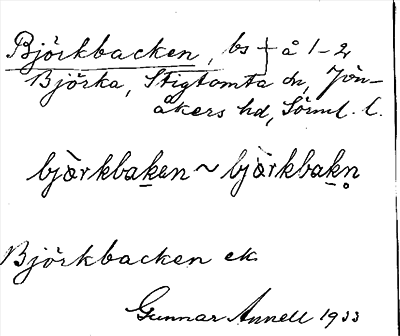 Björkbacken, bs † å 1-2
Björka, Stigtomta sn, Jön-
åkers hd, Sörml. l.
bjørkbaken ~ bjørkbakn̥
Björkbacken ek.
Gunnar Annell 1933